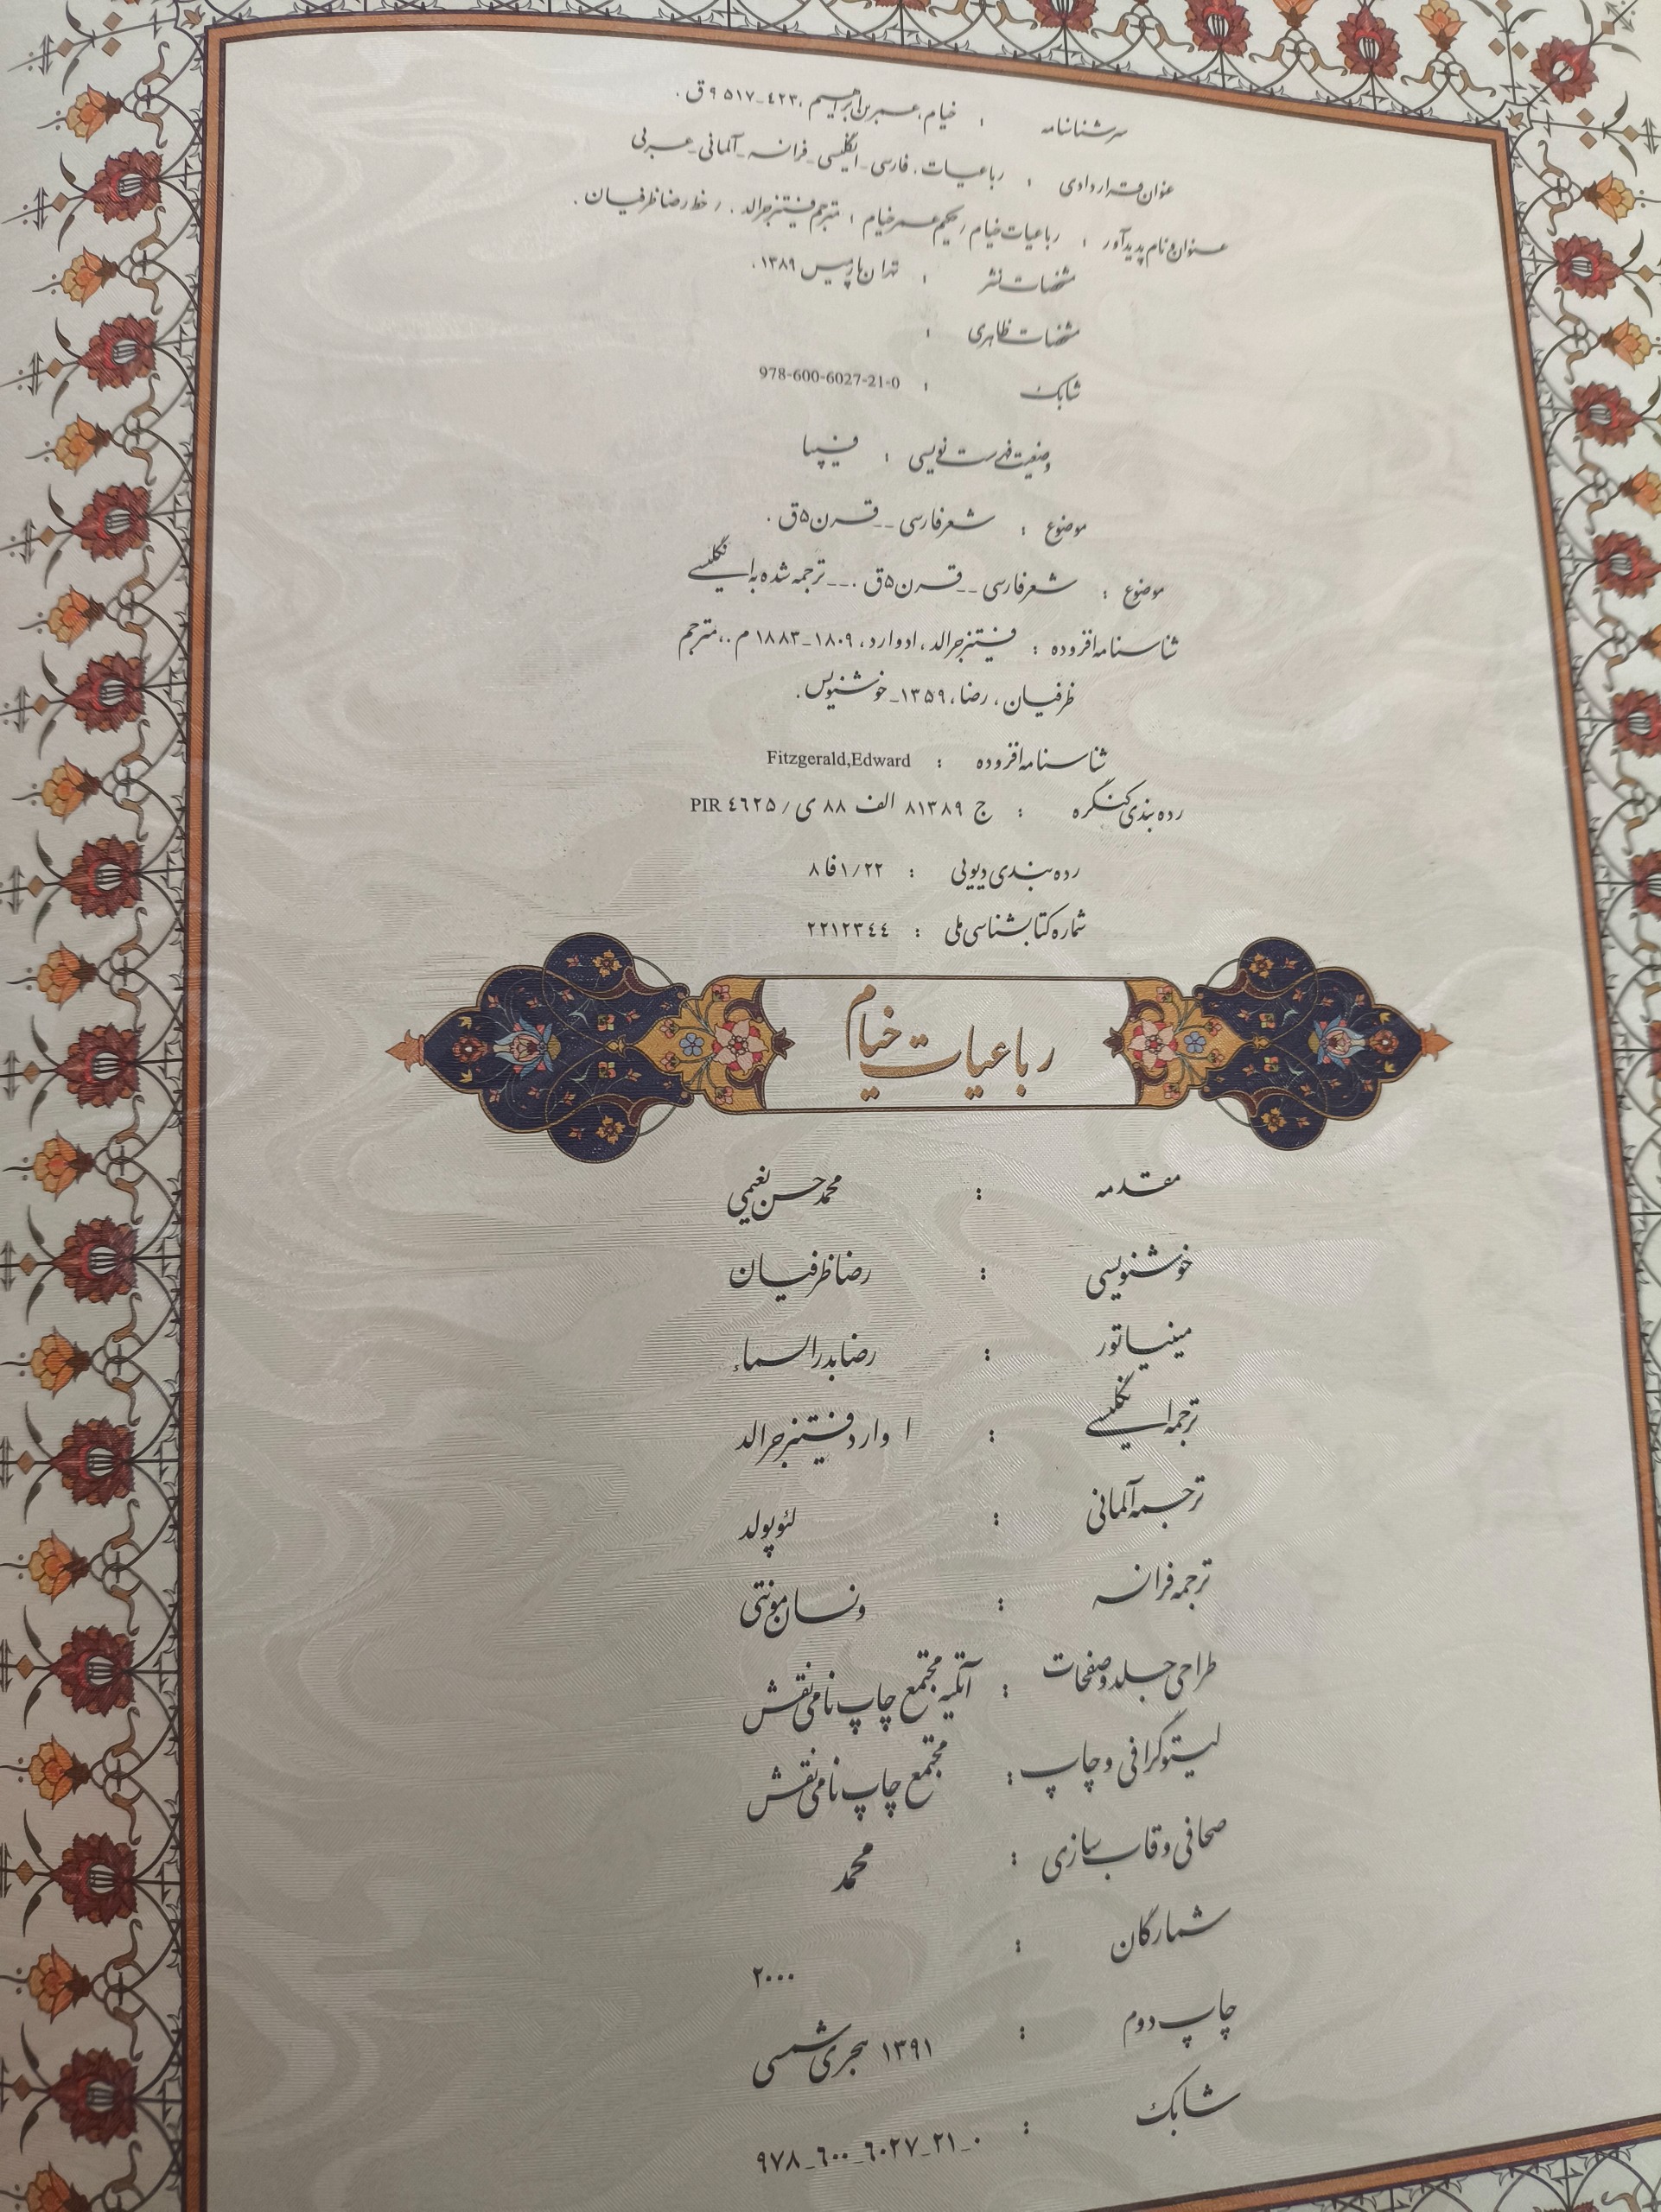 سرشناسنامه : خیام، عمر بن ابراهیم، ٤٢٣ـ٥١٧ ٩ق.
عنوان قراردادی : رباعیات. فارسی ـ انگلیسی ـ فرانسه ـ آلمانی ـ عربی
عنوان و نام پدیدآور : رباعیات خیام / حکیم عمر خیام ؛ مترجم فیتزجرالد. / خط رضا ظرفیان.
مشخصات نشر : تهران پارمیس ١٣٨٩.
مشخصات ظاهری :
شابک : 978-600-6027-21-0
وضعیت فهرست نویسی : فیپا
موضوع : شعر فارسی -- قرن ٥ق.
موضوع : شعر فارسی -- قرن ٥ق. -- ترجمه شده به انگلیسی
شناسنامه افزوده : فیتزجرالد، ادوارد، ١٨٠٩ـ١٨٨٣ م.، مترجم
ظرفیان، رضا، ١٣٥٩ـ خوشنویس.
شناسنامه افزوده : Fitzgerald,Edward
رده بندی کنگره : ج ٨١٣٨٩ الف ٨٨ ی / ٤٦٢٥ PIR
رده بندی دیویی : ١/٢٢فا٨
شماره کتابشناسی ملی : ٢٢١٢٣٤٤
رباعیات خیام
مقدمه : محمد حسن نعیمی
خوشنویسی : رضا ظرفیان
مینیاتور : رضا بدرالسماء
ترجمه انگلیسی : ا وارد فیتزجرالد
ترجمه آلمانی : لئوپولد
ترجمه فرانسه : ونسان مونتی
طراحی جلد و صفحات : آتلیه مجتمع چاپ نامی نقش
لیتوگرافی و چاپ : مجتمع چاپ نامی نقش
صحافی و قاب سازی : محمد
شمارگان : ٢٠٠٠
چاپ دوم : ١٣٩١ هجری شمسی
شابک : ٩٧٨_٦٠٠_٦٠٢٧_٢١_٠